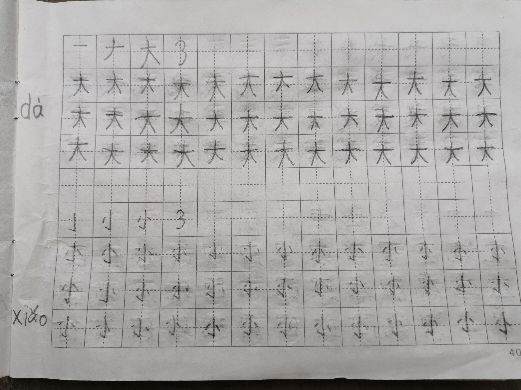 一 ナ 大 3
大 大 大 大 大 大 大 大 大 大 大 大 大
dà 大 大 大 大 大 大 大 大 大 大 大 大 大
大 大 大 大 大 大 大 大 大 大 大 大 大
亅 小 3
小 小 小 小 小 小 小 小 小 小 小 小 小
小 小 小 小 小 小 小 小 小 小 小 小 小
xiǎo 小 小 小 小 小 小 小 小 小 小 小 小 小
40